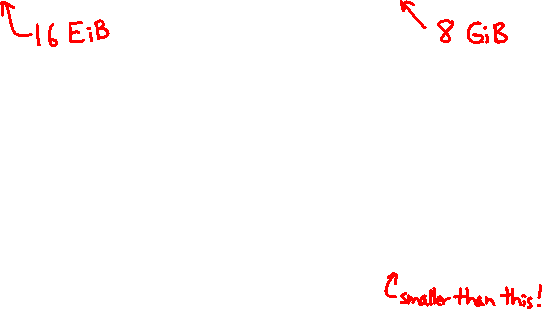 16 EiB
8 GiB
smaller than this!